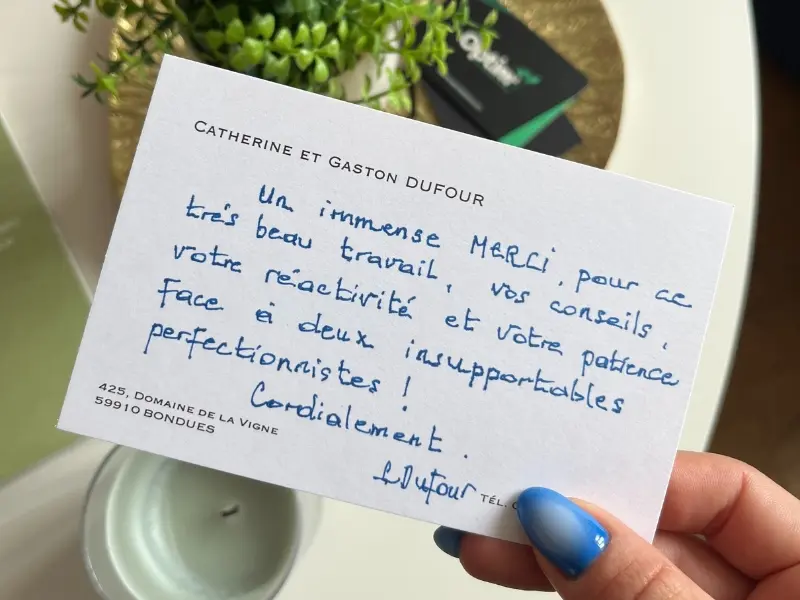 CATHERINE ET GASTON DUFOUR
Un immense MERCi, pour ce
très beau travail, vos conseils,
votre réactivité et votre patience
Face à deux insupportables
perfectionnistes !
Cordialement.
Dufour
425, DOMAINE DE LA VIGNE
59910 BONDUES
TÉL.